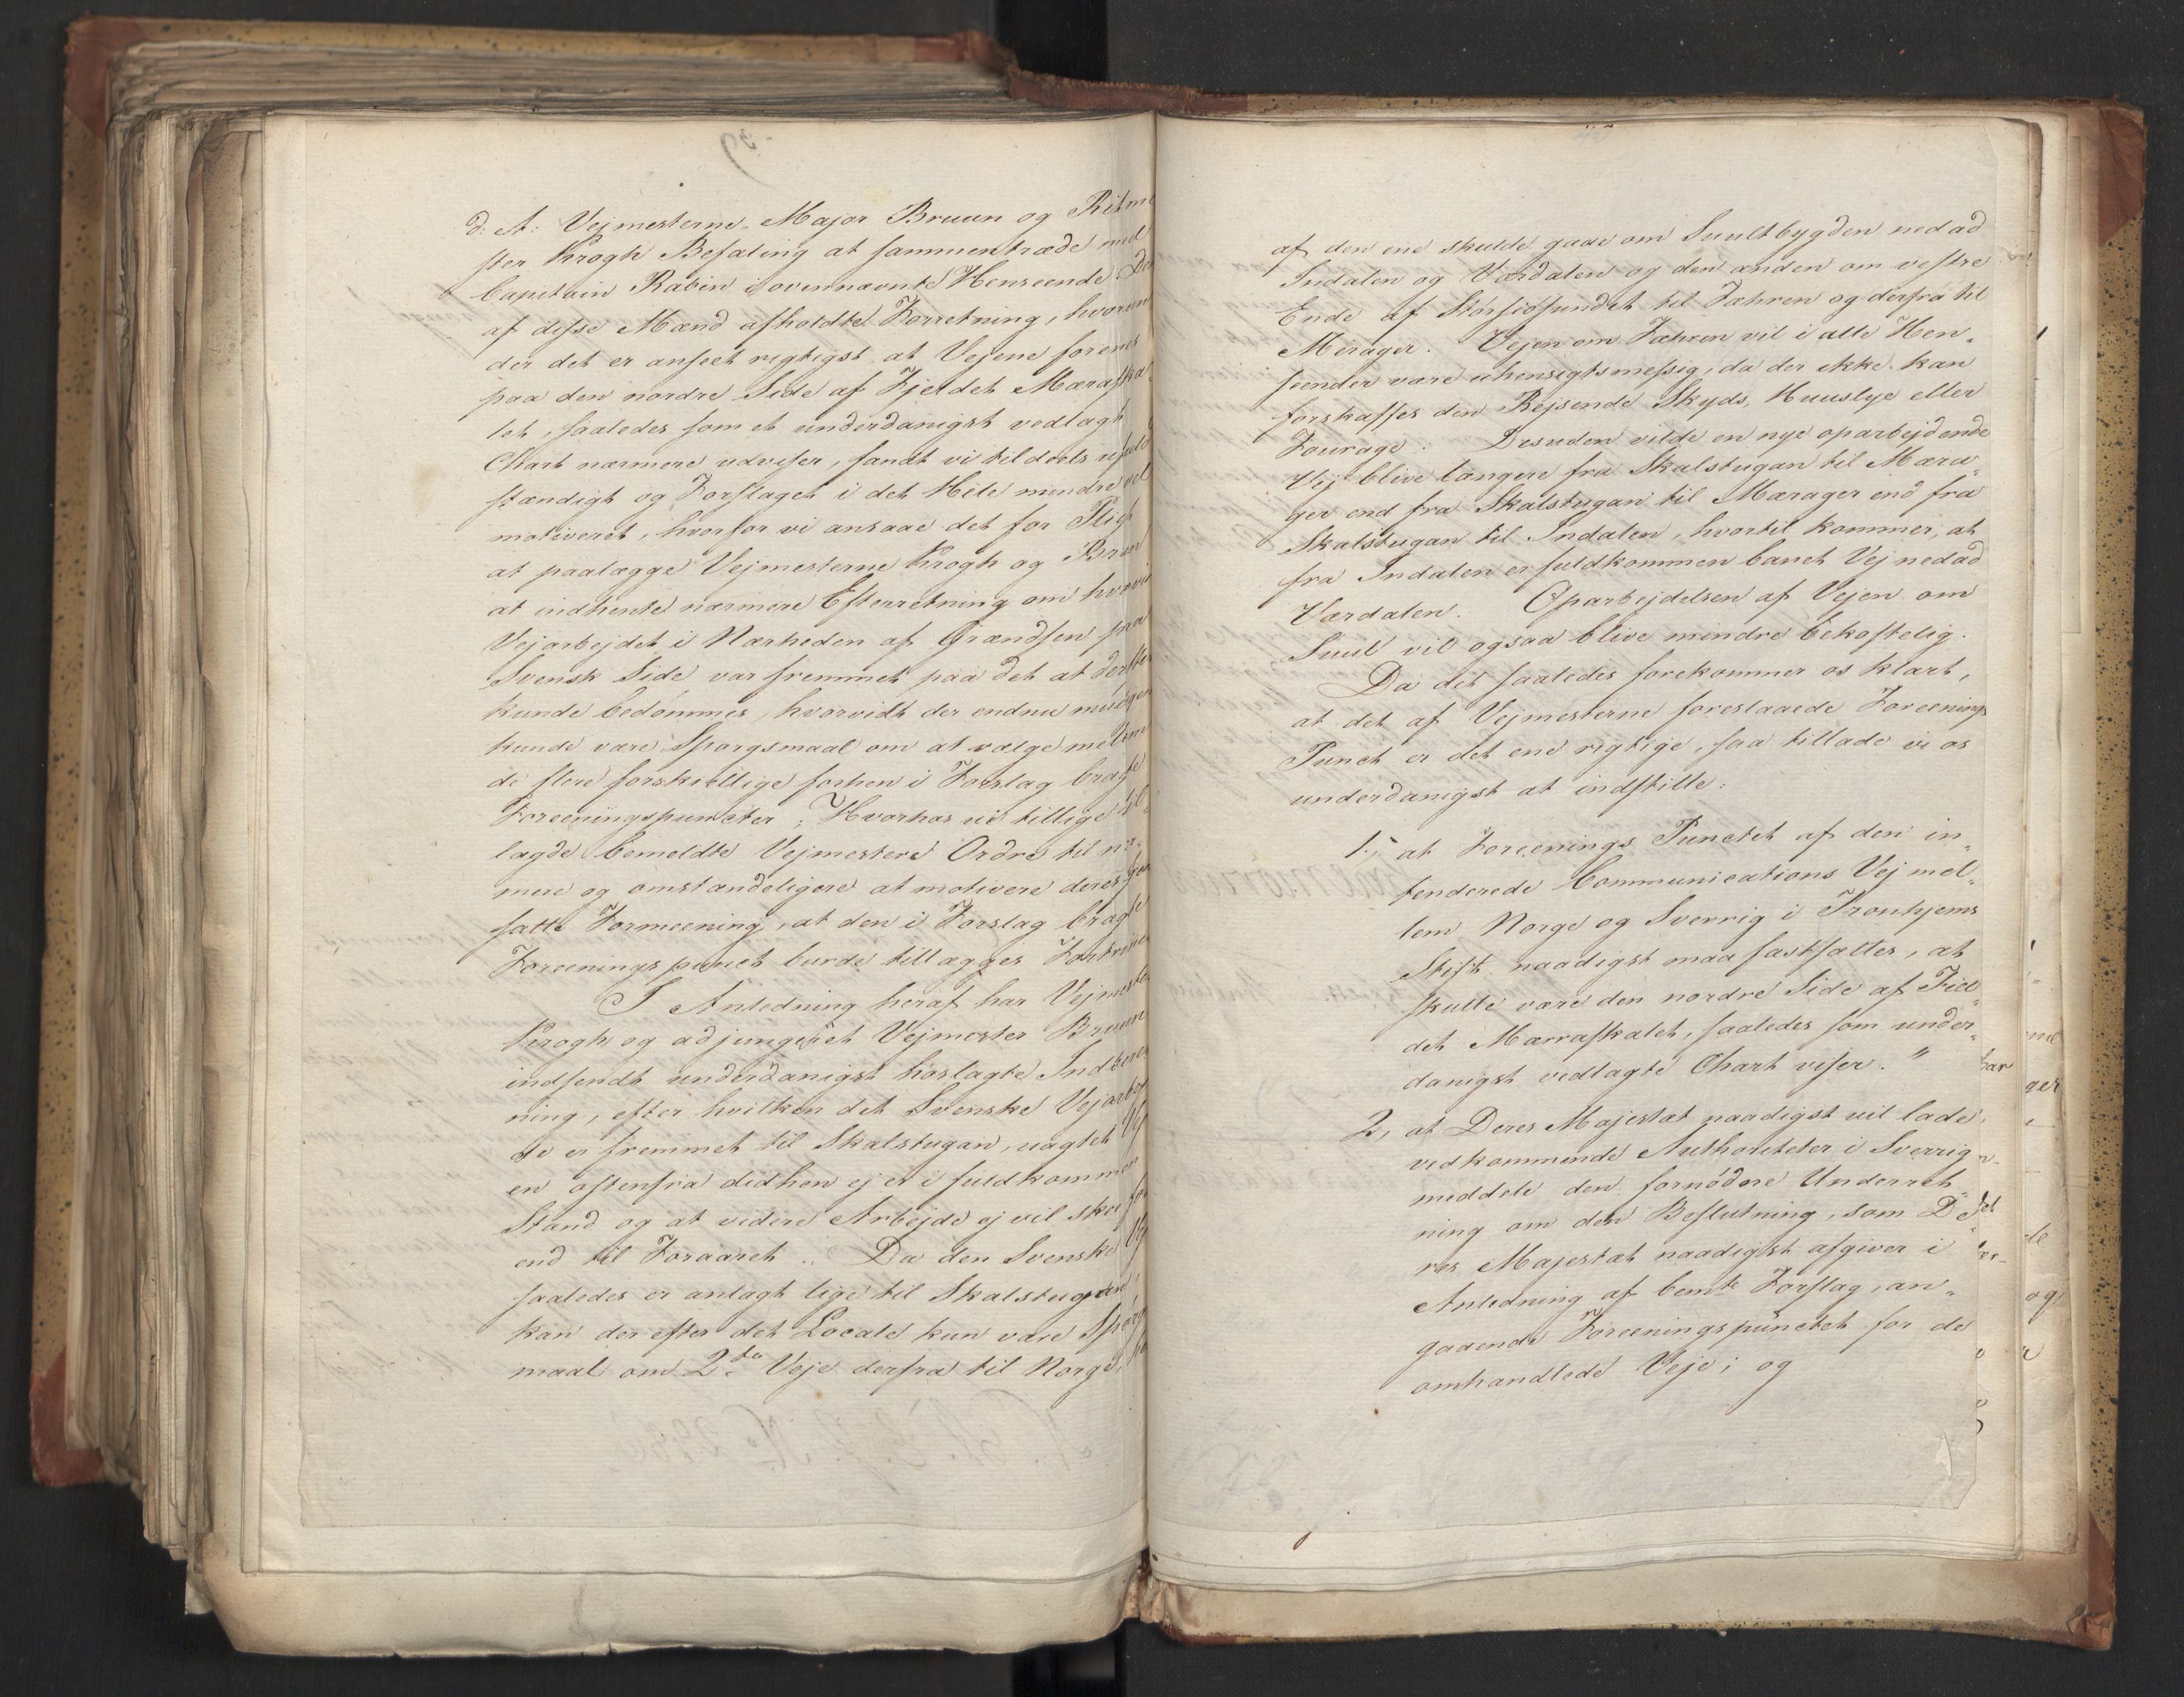 d: A: Vejmesterne, Major Bruun og Ritme
ster Krogh Befaling at sammentræde med
Capitain Rabén i overnævnte Henseende. Den
af disse Mænd afholdte Forretning, hvorun
der det er anseet rigtigst at Vejene forenes
paa den nordre Side af Fjeldet Mæraska
let, saaledes som et underdanigst vedlagt
Chart nærmere udviser, fandt vi tildeels ufuld
stændigt og Forslaget i det Hele mindre vel
motiveret, hvorfor vi ansaae det for Pligt
at paalægge Vejmesterne Krogh og Bruun
at indhente nærmere Efterretning om hvorvidt
Vejarbejdet i Nærheden af Grændsen paa
Svensk Side var fremmet paa det at derefter
kunde bedømmes, hvorvidt der endnu muligen
kunde være Spørgsmaal om at vælge mellem
de flere forskiellige forhen i Forslag bragte
Foreeningspuncter; Hvorhos vi tillige til-
lagde bemeldte Vejmestere Ordre til nær-
mere og omstændeligere at motivere deres frem
satte Formeening, at den i Forslag bragte
Foreenings punct burde tillægges Fortrinet
I Anledning heraf har Vejmester
Krogh og adjungeret Vejmester Bruun
indsendt underdanigst hoslagte Indberet
ning, efter hvilken det Svenske Vejarbej
de er fremmet til Skalstugan, uagtet Vej
en østenfra didhen ej er i fuldkommen
Stand og at videre Arbejde ej vil skee før
end til Foraaret. Da den Svenske Vej
saaledes er anlagt lige til Skalstugan,
kan der efter det Locale kun være Spørgs
maal om 2de Veje derfra til Norge,
af den ene skulde gaae om Suultbygden nedad
Indalen og Værdalen og den anden om vestre
Ende af Storsiøsundet til Fæhren og derfra til
Merager. Vejen om Fæhren vil i alle Hen-
seender være uhensigtsmessig, da der ikke kan
forskaffes den Rejsende Skyds, Huuslye eller
Fourage. Desuden vilde en nye oparbejdende
Vej blive længere fra Skalstugan til Mæra-
ger end fra Skalstugan til Mærager end fra
Skalstugan til Indalen, hvortil kommer, at
fra Indalen er fuldkommen banet Vej nedad
Værdalen. Oparbejdelsen af Vejen om
Suul vil ogsaa blive mindre bekostelig.
Da det saaledes forekommer os klart,
at det af Vejmesterne foreslaaede Foreenings
Punct er det ene rigtige, saa tillade vi os
underdanigst at indstille:
1, at Foreenings Punctet af den in-
tenderede Communications Vej mel-
lem Norge og Sverrig i Tronhjems
Stift naadigst maa fastsættes, at
skulle være den nordre Side af Fiel-
det Mærraskalet, saaledes som under-
danigst vedlagte Chart viser."
2, at Deres Majestæt naadigst vil lade
vedkommende Authoriteter i Sverrig
meddele den fornødne Underret
ning om den Beslutning, som De-
res Majestæt naadigst afgiver i
Anledning af bemte Forslag, an-
gaaende Foreeningspunctet for de
omhandlede Veje; og